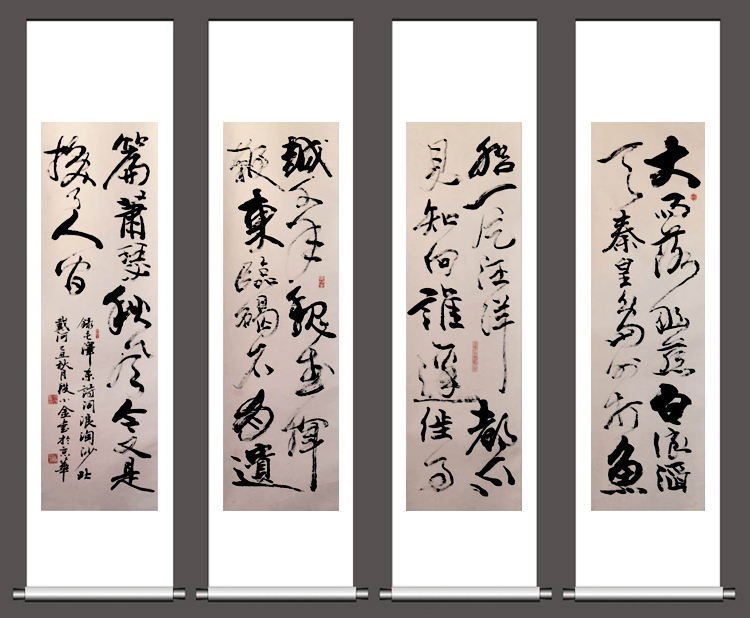 大雨落幽燕白浪滔
天秦皇島外打魚
船一片汪洋都不
見知向誰邊往事
越千年魏武揮
鞭東臨碣石有遺
篇蕭瑟秋風今又是
換了人间
錄毛澤東詩詞浪淘沙北
戴河己丑秋月段小金書於京華